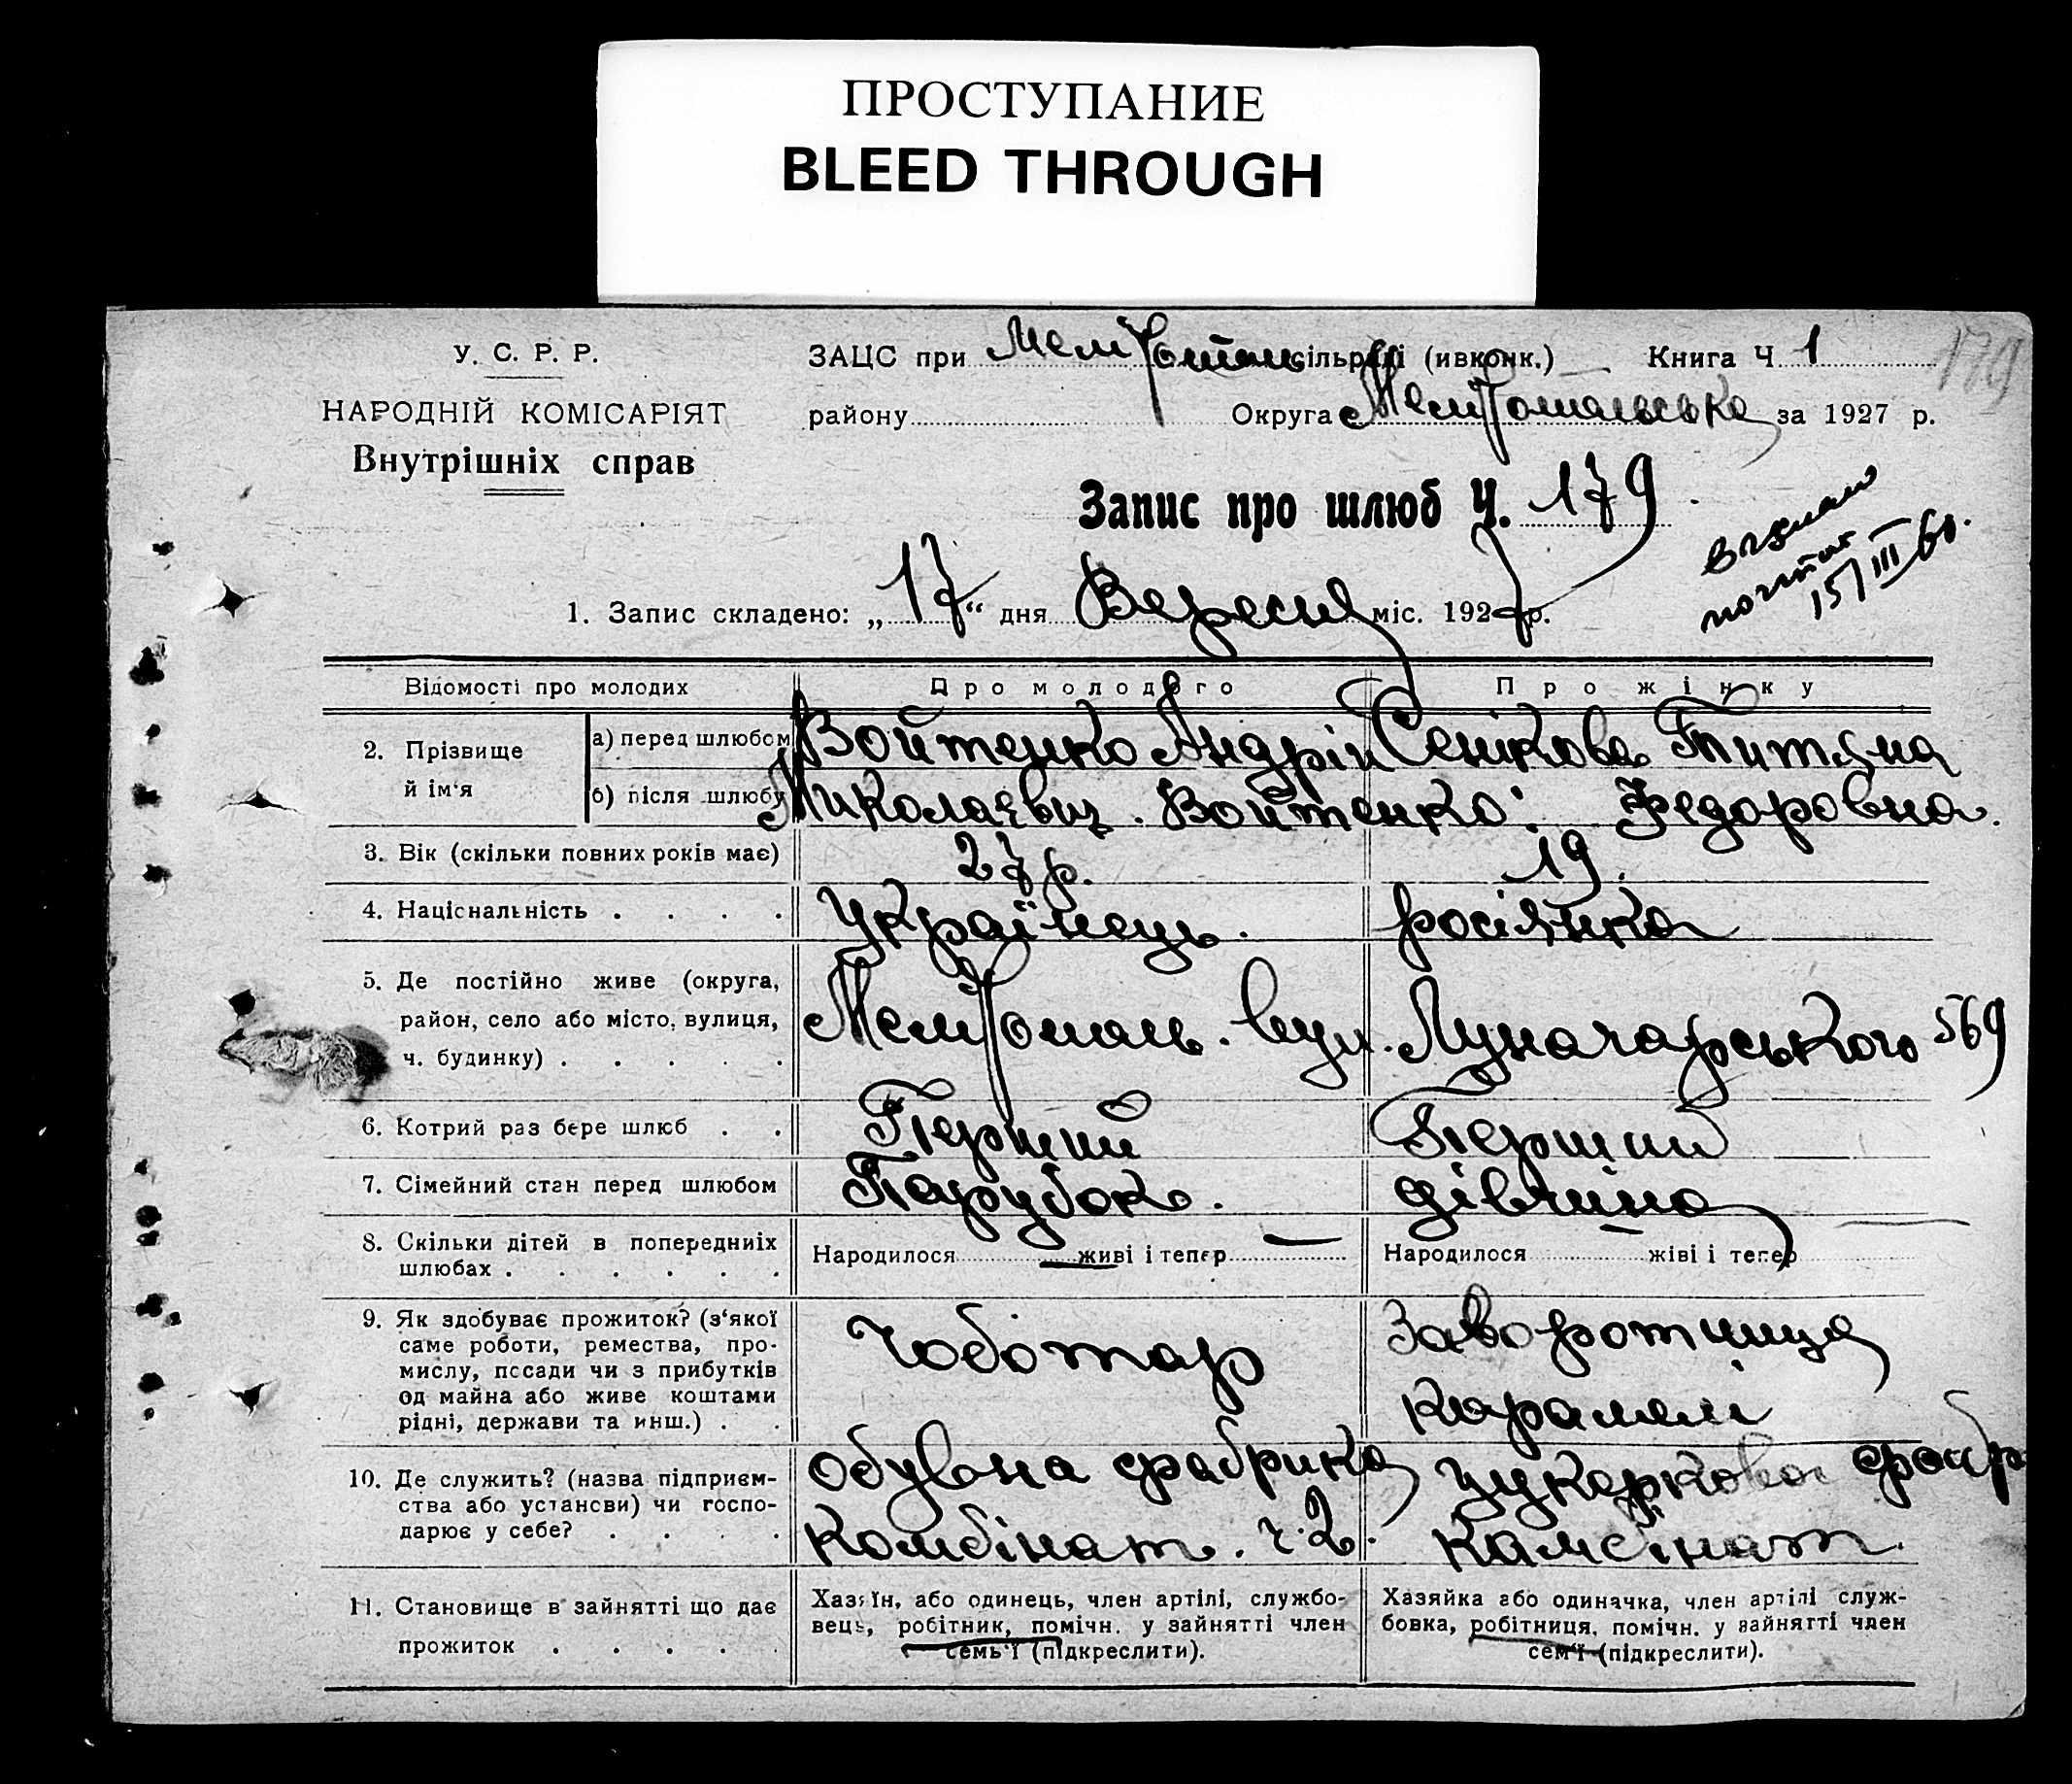 ПРОСТУПАНИЕ
BLEED THROUGH
У. С. Р. Р.
НАРОДНІЙ КОМІСАРІЯТ
Внутрішніх справ
ЗАЦС при сільраді (ивконк.) Книга Ч. 1 179
району Округа Мелітопільська за 1927 р.
Запис про шлюб Ч. 179
1. Запис складено: „17“ дня Вересня міс. 1927 р.
15/III 60.
Відомості про молодих Про молодого Про жінку
2. Прізвище й ім'я
а) перед шлюбом Войтенко Андрій Сенікова Титяна
б) після шлюбу Миколаєвич. Войтенко. Федоровна.
3. Вік (скільки повних років має) 27 р. 19.
4. Національність . . . . Українець. росіянка
5. Де постійно живе (округа, район, село або місто, вулиця, ч. будинку) . . . . . Мелітопіль. вул. Луначарського 569
6. Котрий раз бере шлюб . . Перший Перший
7. Сімейний стан перед шлюбом Парубок. дівчина
8. Скільки дітей в попередниіх шлюбах . . . . . . Народилося — живі і тепер — Народилося — жіві і тепер
9. Як здобуває прожиток? (з'якої саме роботи, ремества, промислу, посади чи з прибутків од майна або живе коштами рідні, держави та инш.) . . Чоботар Заворотниця карамелі
10. Де служить? (назва підприємства або установи) чи господарює у себе? . . . . Обувна фабрика комбінат. ч. 2. цукеркова фабр камбінат.
11. Становище в зайнятті що дає прожиток . . . . .
Хазяїн, або одинець, член артілі, службовець, робітник, помічн. у зайнятті член семь'ї (підкреслити).
Хазяйка або одиначка, член артілі службовка, робітниця, помічн. у зайнятті член сем'ї (підкреслити).